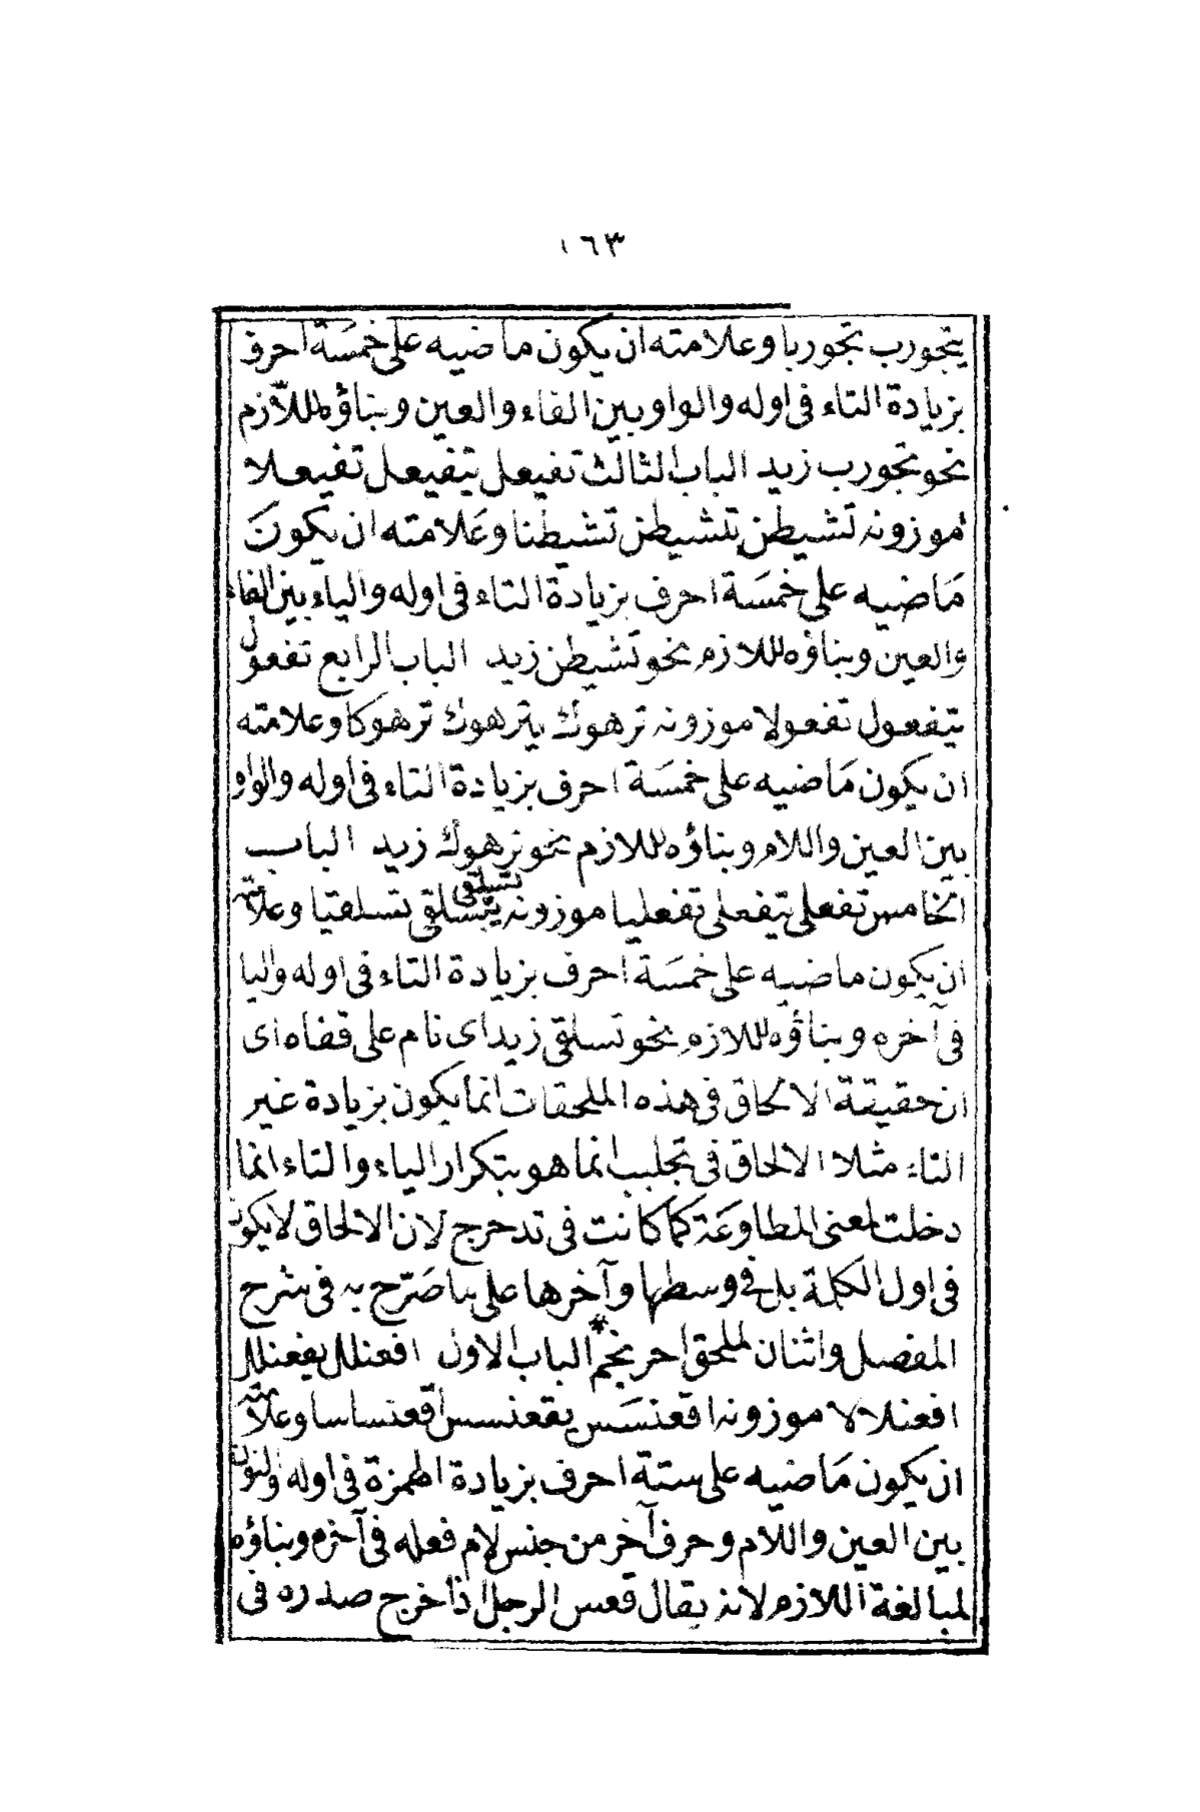 ١٦٣
يتجورب تجوربا وعلامته ان يكون ماضيه على خمسة احرف
بزيادة التاء فى اوله والواو بين الفاء والعين وبناؤه للازم
نحو تجورب زيد الباب الثالث تفيعل يتفيعل تفيعلا
موزونه تشيطن يتشيطن تشيطنا وعلامته ان يكون
ماضيه على خمسة احرف بزيادة التاء فى اوله والياء بين الفاء
والعين وبناؤه للازم نحو تشيطن زيد الباب الرابع تفعول
يتفعول تفعولا موزونه ترهوك يترهوك ترهوكا وعلامته
ان يكون ماضيه على خمسة احرف بزيادة التاء فى اوله والواو
بين العين واللام وبناؤه للازم نحو ترهوك زيد الباب
الخامس تفعلى يتفعلى تفعليا موزونه تسلقى يتسلقى تسلقيا وعلامته
ان يكون ماضيه على خمسة احرف بزيادة التاء فى اوله واليا
فى آخره وبناؤه للازم نحو تسلقى زيد اى نام على قفاه اى
ان حقيقة الالحاق فى هذه الملحقات انما يكون بزيادة غير
التاء مثلا الالحاق فى تجلبب انما هو بتكرار الباء والتاء انما
دخلت لمعنى المطاوعة كما كانت فى تدحرج لان الالحاق لا يكون
فى اول الكلمة بل فى وسطها وآخرها على ما صرّح به فى شرح
المفصل واثنان لملحق احرنجم * الباب الاول افعنلل يفعنلل
افعنلالا موزونه اقعنسس يقعنسس اقعنساسا وعلامته
ان يكون ماضيه على ستة احرف بزيادة الهمزة فى اوله والنون
بين العين واللام وحرف آخر من جنس لام فعله فى آخره وبناؤه
لمبالغة اللازم لانه يقال قعس الرجل اذا خرج صدره فى